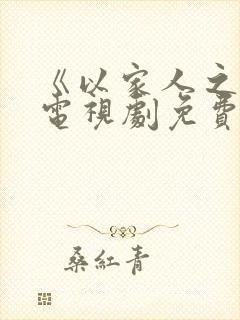 《以家人之
電視劇免費
桑紅青